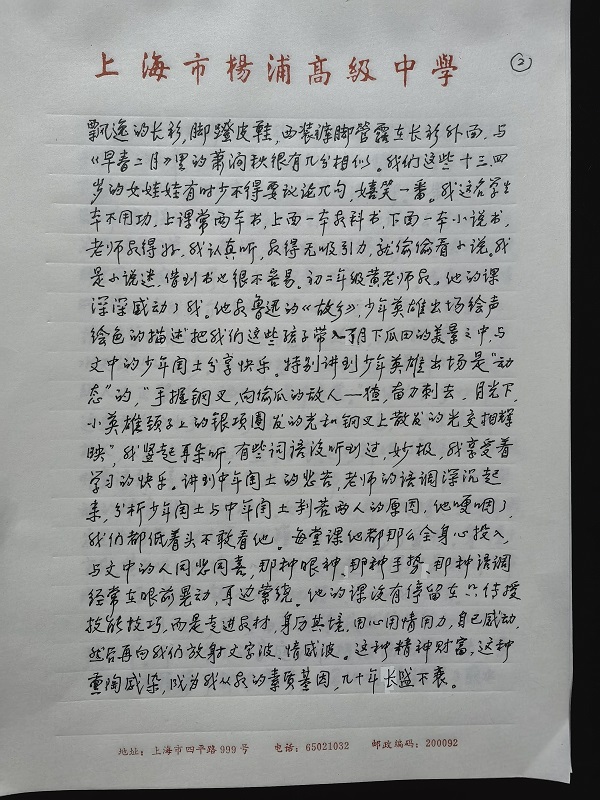 上海市楊浦高級中學
②
飘逸的长衫，脚蹬皮鞋，西装裤脚管露在长衫外面，与
《早春二月》里的萧涧秋很有几分相似。我们这些十三四
岁的女娃娃有时少不得要议论几句，嬉笑一番。我这名学生
车不用功，上课常两本书，上面一本教科书，下面一本小说书，
老师教得好，我认真听，教得无吸引力，就偷偷看小说。我
是小说迷，借到书也很不容易。初二年级黄老师教。他的课
深深感动了我。他教鲁迅的《故乡》，少年英雄出场绘声
绘色的描述把我们这些孩子带入了月下瓜田的美景之中，与
文中的少年闰土分享快乐。特别讲到少年英雄出场是“动
态”的，“手握钢叉，向偷瓜的敌人—猹，奋力刺去，月光下，
小英雄颈子上的银项圈发的光和钢叉上散发的光交相辉
映”，我竖起耳朵听，有些词语没听到过，妙极，我享受着
学习的快乐。讲到中年闰土的悲苦，老师的语调深沉起
来，分析少年闰土与中年闰土判若两人的原因，他哽咽了，
我们都低着头不敢看他。每堂课他都那么全身心投入，
与文中的人同悲同喜，那种眼神、那种手势、那种语调
经常在眼前晃动，耳边萦绕。他的课没有停留在只传授
技能技巧，而是走进教材，身历其境，用心用情用力，自己感动，
然后再向我们放射文字波、情感波。这种精神财富，这种
熏陶感染，成为我从教的素质基因，几十年长盛不衰。
地址：上海市四平路999号 电话：65021032 邮政编码：200092